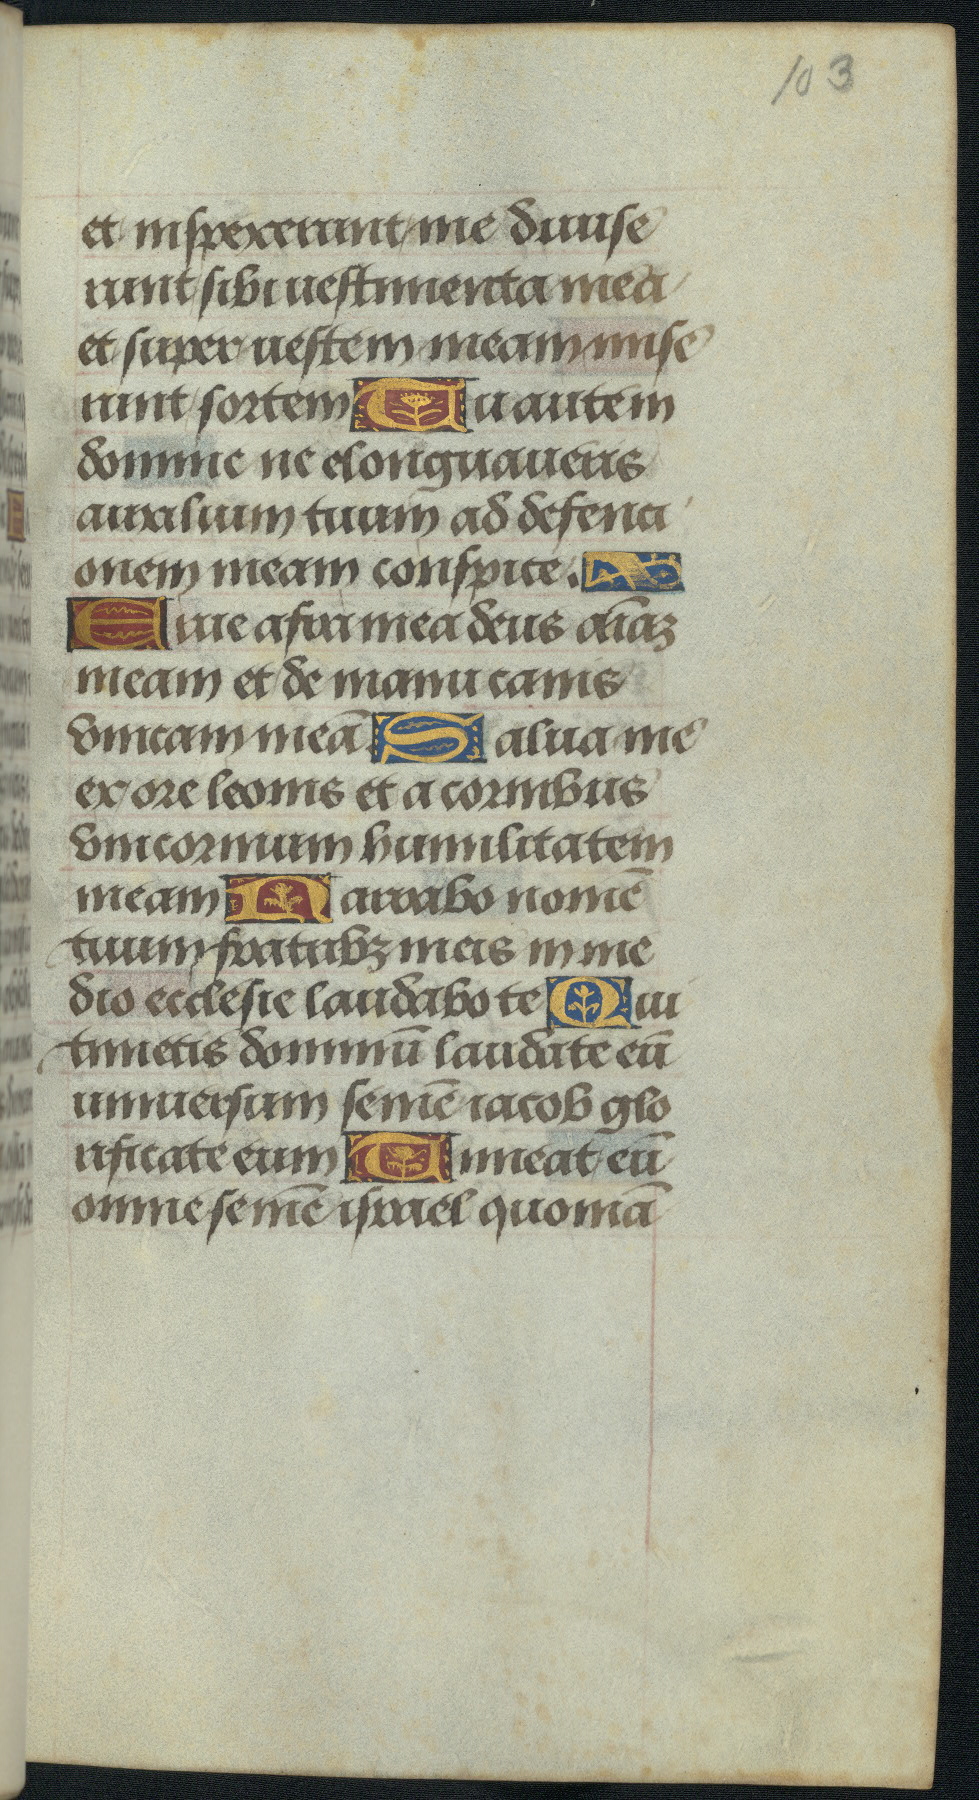 103
et inspexerunt me diuise
runt sibi uestimenta mea
et super uestem meam mise
runt sortem Tu autem
domine ne elongaueris
auxilium tuum ad defenci
onem meam conspice.
Erue a fra mea deus aīaz
meam et de manu canis
vnicam meā Salua me
ex ore leonis et a cornibus
vnicornium humilitatem
meam Narrabo nomē
tuum fratribz meis in me
dio ecclesie laudabo te Qui
timetis dominū laudate eū
uniuersum semē iacob glo
rificate eum Timeat eū
omne semē israel quoniā